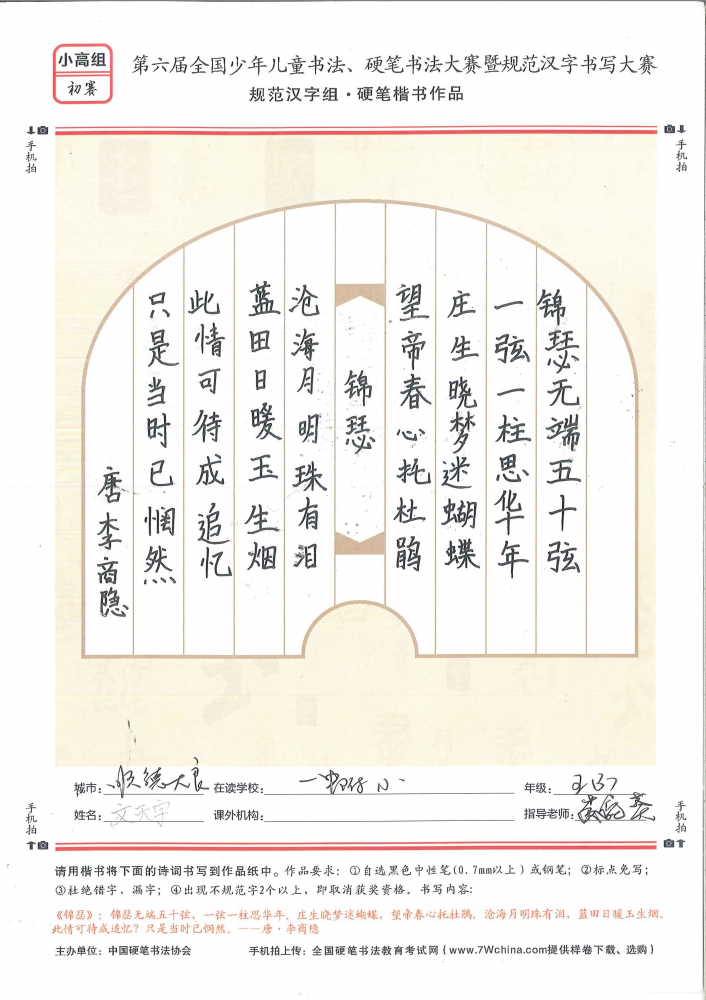 小高组
初赛
第六届全国少年儿童书法、硬笔书法大赛暨规范汉字书写大赛
规范汉字组·硬笔楷书作品
手机拍
手机拍
锦瑟无端五十弦
一弦一柱思华年
庄生晓梦迷蝴蝶
望帝春心托杜鹃
锦瑟
沧海月明珠有泪
蓝田日暖玉生烟
此情可待成追忆
只是当时已惘然
唐李商隐
城市：顺德大良 在读学校： 年级：
姓名：文天宇 课外机构： 指导老师：
手机拍
手机拍
请用楷书将下面的诗词书写到作品纸中。作品要求：①自选黑色中性笔(0.7mm以上)或钢笔；②标点免写；
③杜绝错字、漏字；④出现不规范字2个以上，即取消获奖资格。书写内容：
《锦瑟》：锦瑟无端五十弦，一弦一柱思华年。庄生晓梦迷蝴蝶，望帝春心托杜鹃。沧海月明珠有泪，蓝田日暖玉生烟。
此情可待成追忆？只是当时已惘然。——唐·李商隐
主办单位：中国硬笔书法协会 手机拍上传：全国硬笔书法教育考试网(www.7Wchina.com提供样卷下载、选购)